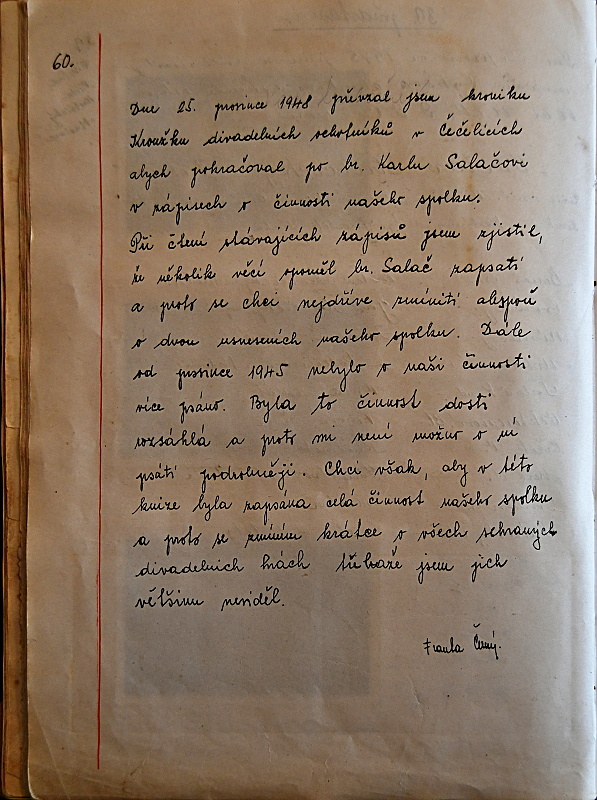 60.
Dne 25. prosince 1948 převzal jsem kroniku
Kroužku divadelních ochotníků v Čečelicích
abych pohračoval po br. Karlu Salačovi
v zápisech o činnosti našeho spolku.
Při čtení stávajících zápisů jsem zjistil,
že několik věcí opoměl br. Salač zapsati
a proto se chci nejdříve zmíniti alespoň
o dvou usneseních našeho spolku. Dále
od prosince 1945 nebylo o naši činnosti
více psáno. Byla to činnost dosti
rozsáhlá a proto mi není možno o ní
psáti podrobněji. Chci však, aby v této
knize byla zapsána celá činnost našeho spolku
a proto se zmíním krátce o všech sehraných
divadelních hrách třebaže jsem jich
většinu neviděl.
Franta Černý.